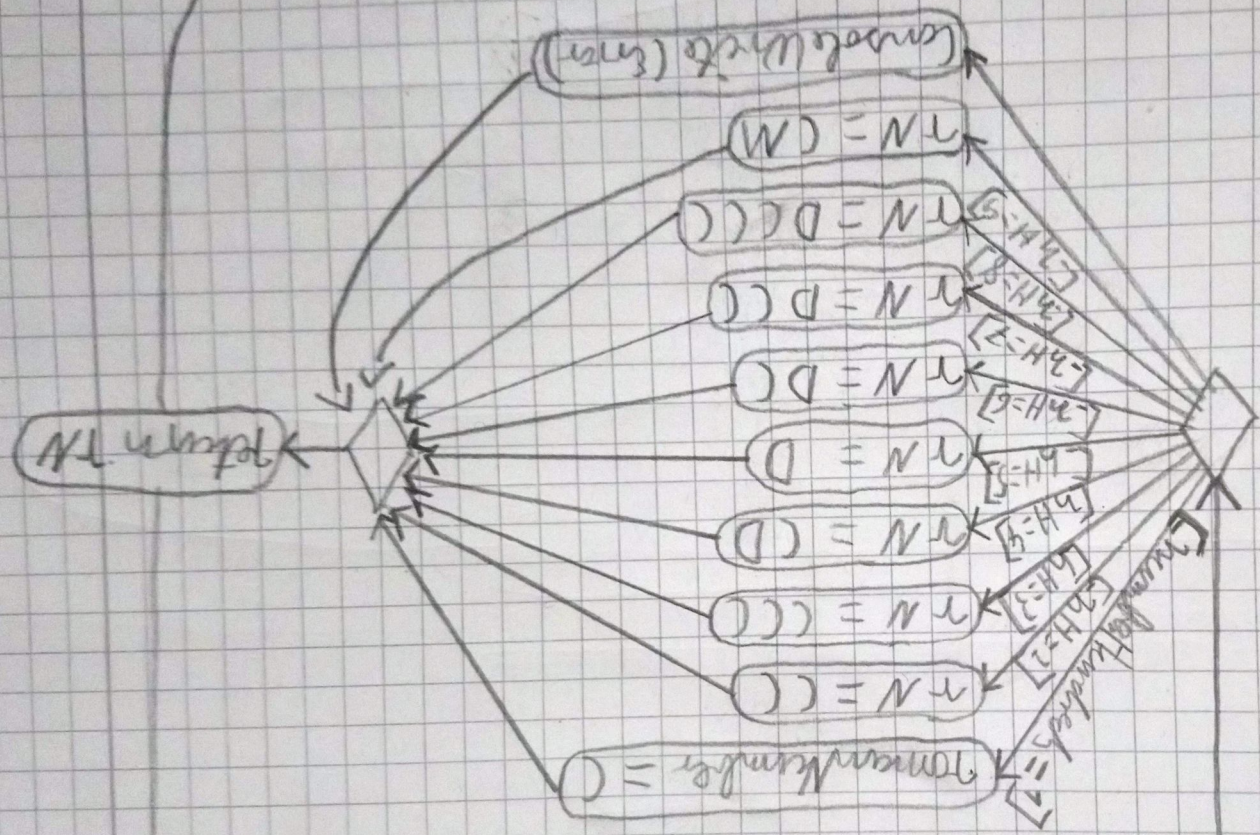 [numberHundred == 1]
romanNumber = C
[nH=2]
rN = CC
[nH=3]
rN = CCC
[nH=4]
rN = CD
[nH=5]
rN = D
return rN
[nH=6]
rN = DC
[nH=7]
rN = DCC
[nH=8]
rN = DCCC
[nH=9]
rN = CM
ConsoleWrite (Error)